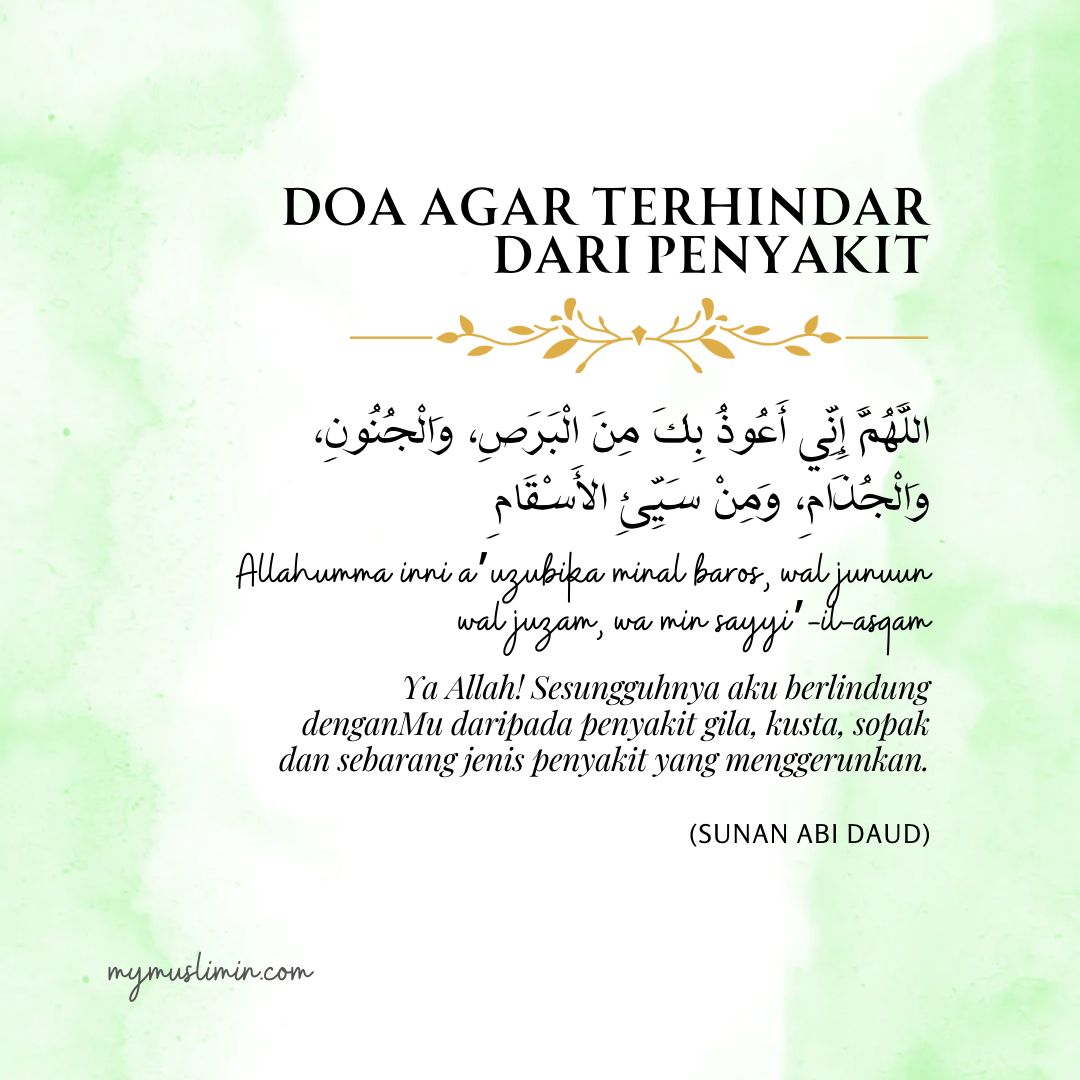 DOA AGAR TERHINDAR
DARI PENYAKIT
اللَّهُمَّ إِنِّي أَعُوذُ بِكَ مِنَ الْبَرَصِ، وَالْجُنُونِ،
وَالْجُذَامِ، وَمِنْ سَيِّئِ الأَسْقَامِ
Allahumma inni a'uzubika minal baros, wal junuun
wal juzam, wa min sayyi'-il-asqam
Ya Allah! Sesungguhnya aku berlindung
denganMu daripada penyakit gila, kusta, sopak
dan sebarang jenis penyakit yang menggerunkan.
(SUNAN ABI DAUD)
mymuslimin.com